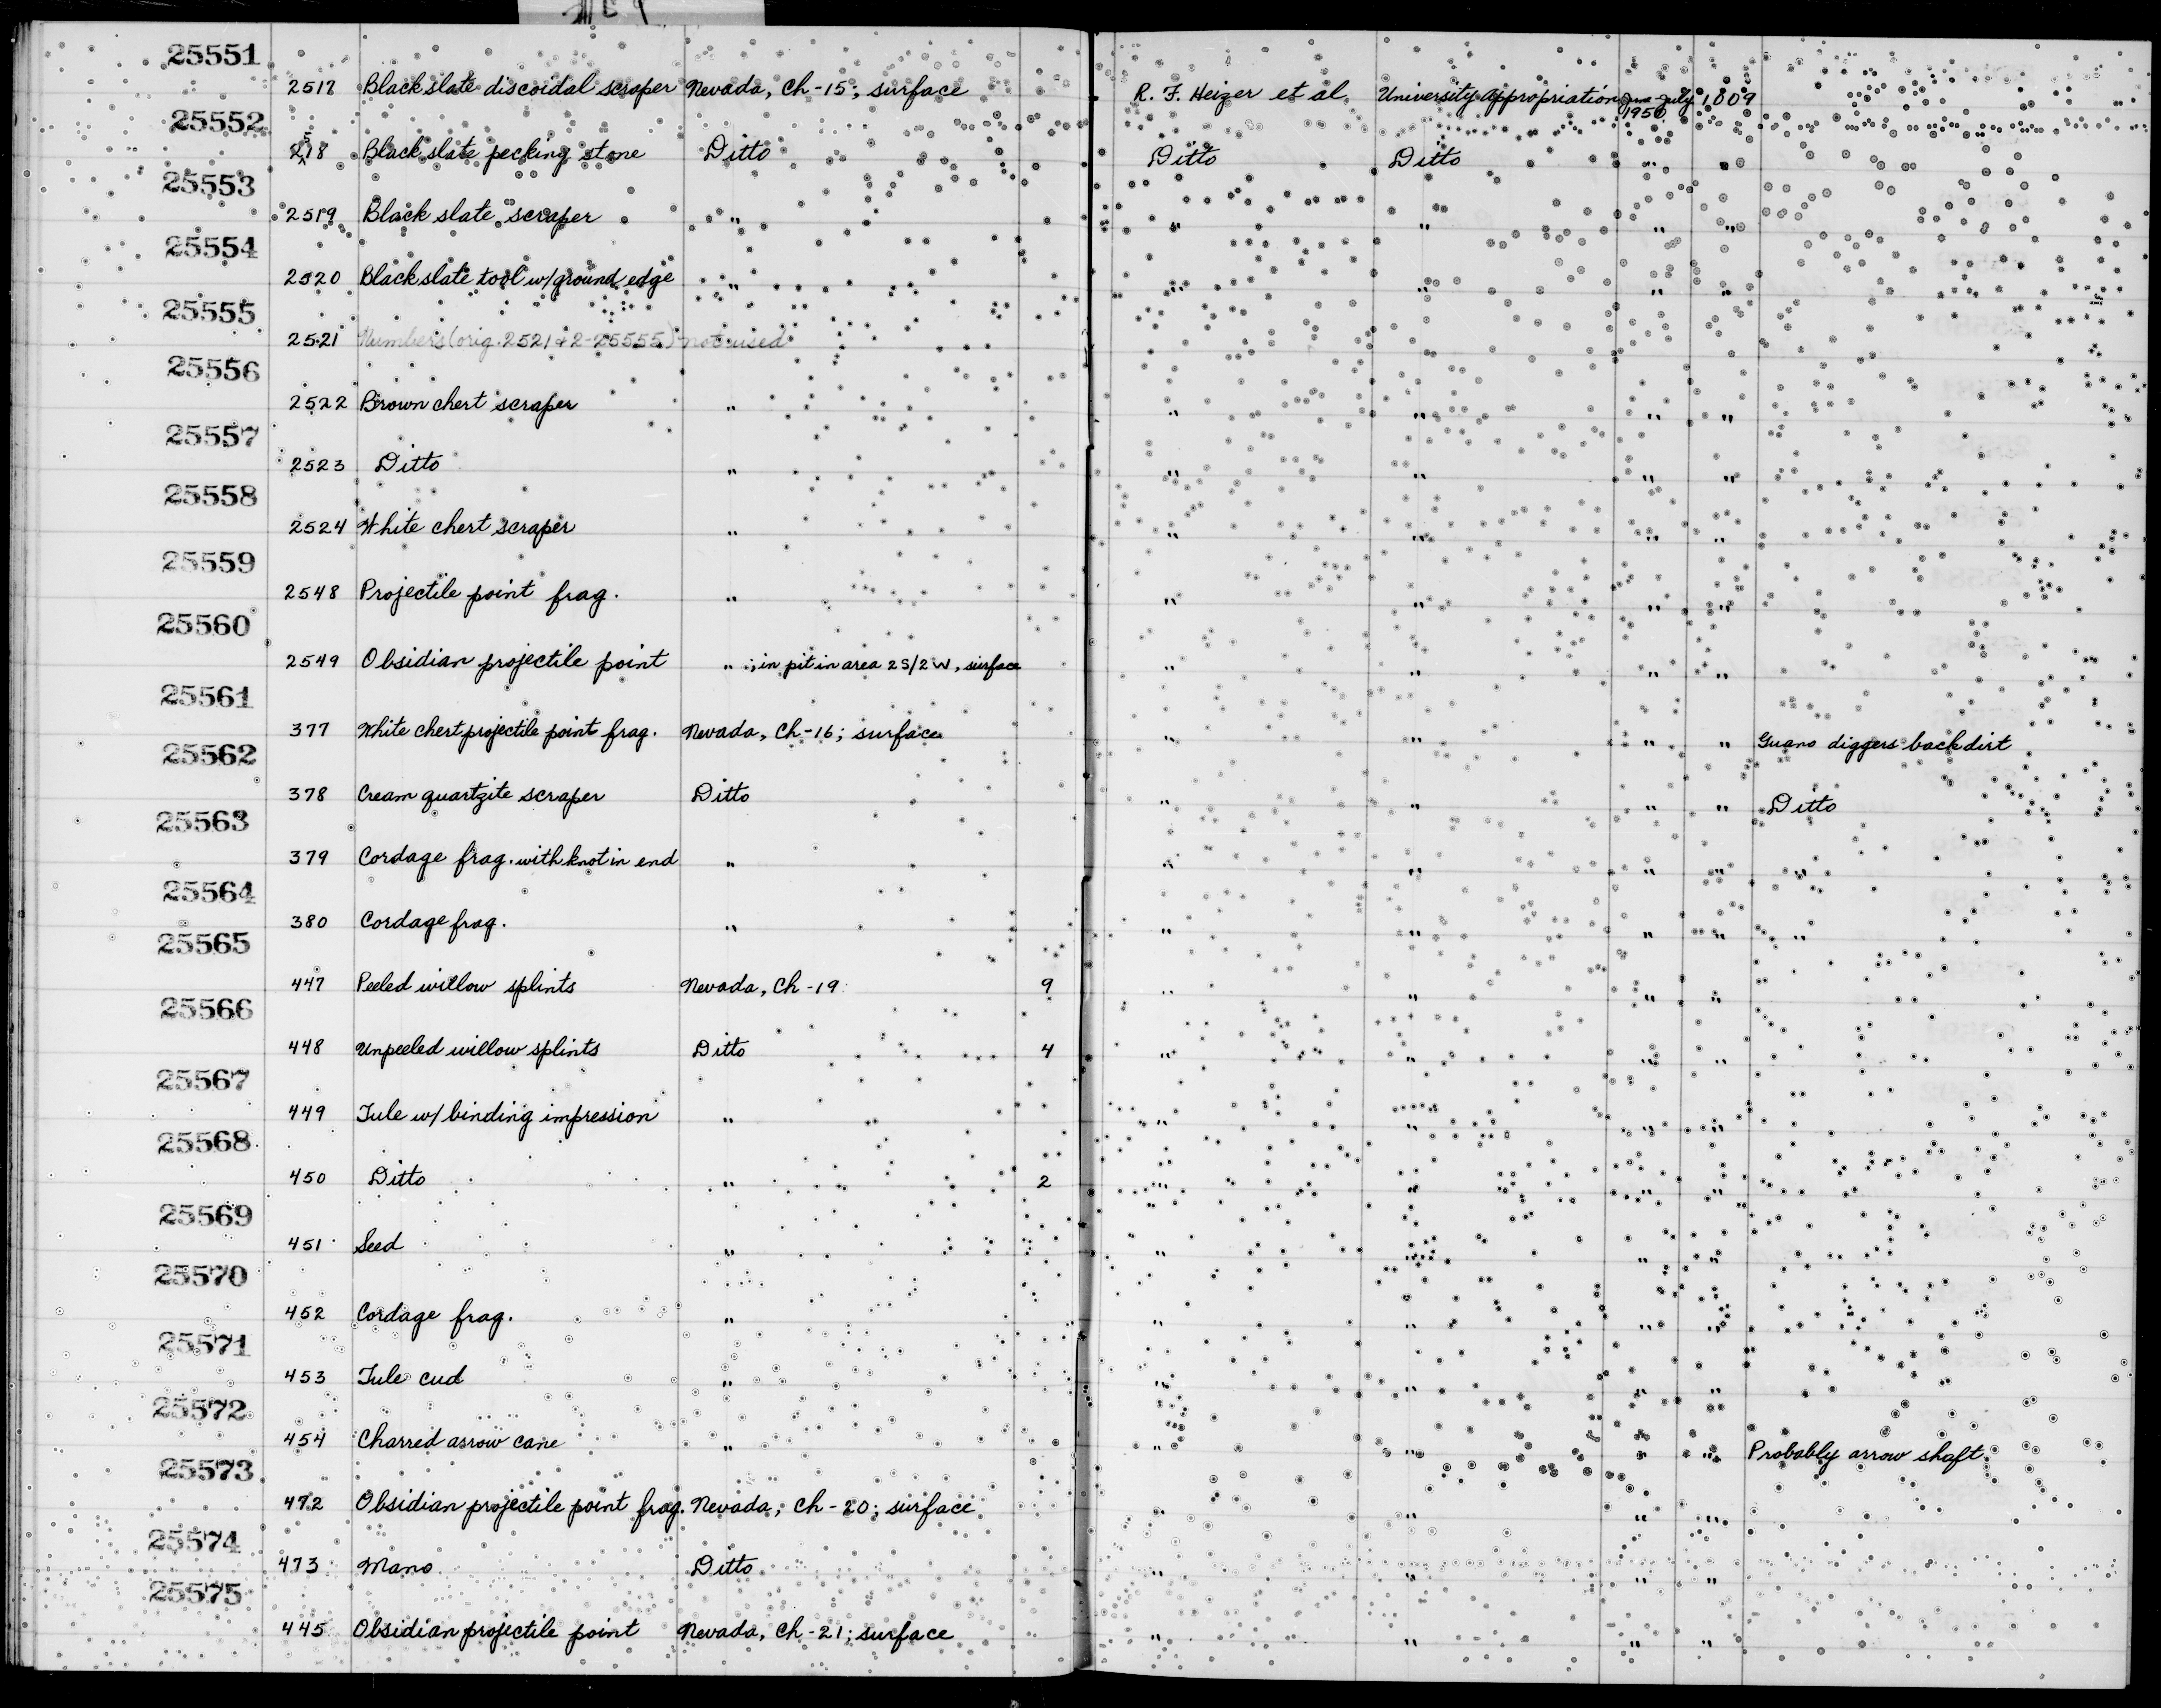 25551
2517 Black slate discoidal scraper Nevada, Ch-15; surface R. F. Heizer et al University Appropriation June-July 1950 1009
25552
2518 Black slate pecking stone Ditto Ditto Ditto " "
25553
2519 Black slate scraper " " " " "
25554
2520 Black slate tool w/ground edge " " " " "
25555
2521 Numbers (orig. 2521 + 2-25555) not used
25556
2522 Brown chert scraper " " " " "
25557
2523 Ditto " " " " "
25558
2524 White chert scraper " " " " "
25559
2548 Projectile point frag. " " " " "
25560
2549 Obsidian projectile point " ; in pit in area 2S/2W, surface " " " "
25561
377 White chert projectile point frag. Nevada, Ch-16; surface " " " " Guano diggers backdirt
25562
378 Cream quartzite scraper Ditto " " " " Ditto
25563
379 Cordage frag. with knot in end " " " " " "
25564
380 Cordage frag. " " " " " "
25565
447 Peeled willow splints Nevada, Ch-19 9 " " " "
25566
448 Unpeeled willow splints Ditto 4 " " " "
25567
449 Tule w/ binding impression " " " " "
25568
450 Ditto " 2 " " " "
25569
451 Seed " " " " "
25570
452 Cordage frag. " " " " "
25571
453 Tule cud " " " " "
25572
454 Charred arrow cane " " " " " Probably arrow shaft
25573
472 Obsidian projectile point frag. Nevada, Ch-20; surface " " " "
25574
473 Mano Ditto " " " "
25575
445 Obsidian projectile point Nevada, Ch-21; surface " " " "